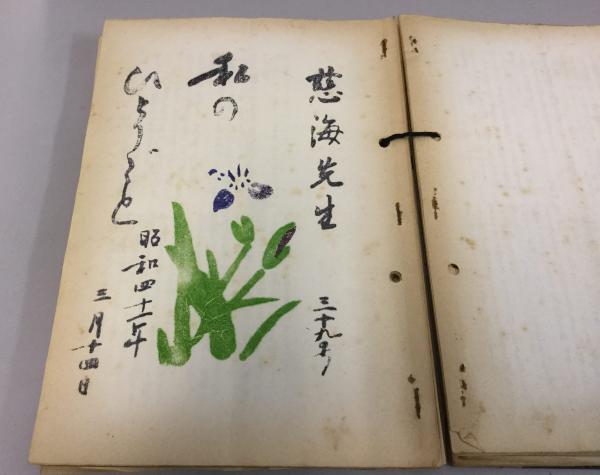 慈海先生
三十九号
私の
ひとりごと
昭和四十一年
三月十四日